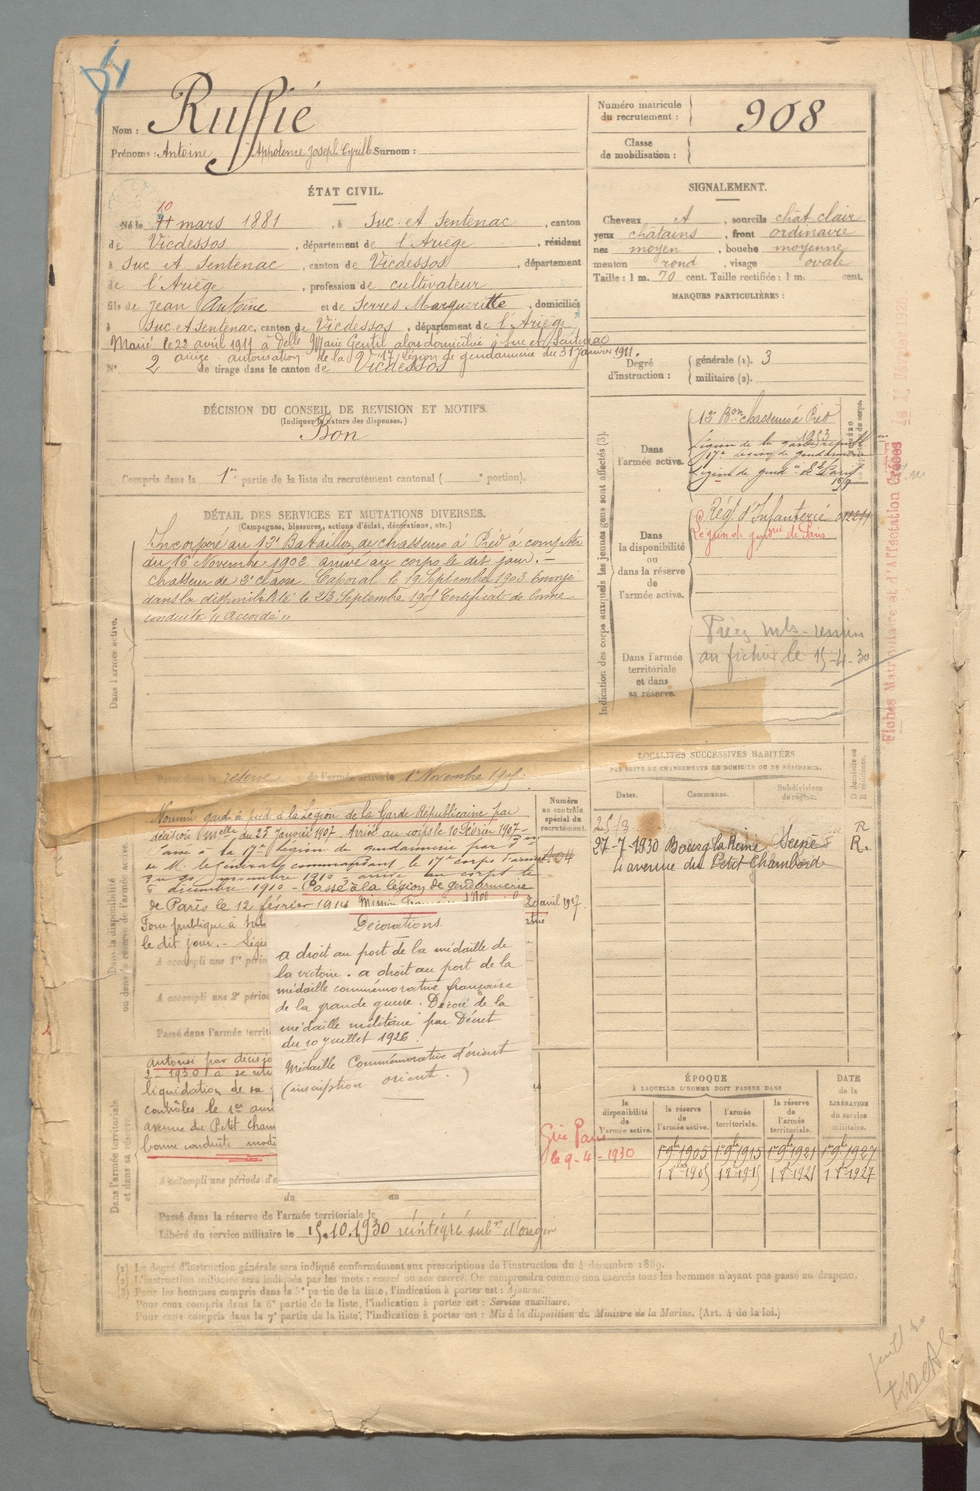 Nom : Ruffié
Prénoms : Antoine Apholonie Joseph Cyrille Surnom :
Numéro matricule du recrutement : 908
Classe de mobilisation :
ÉTAT CIVIL.
Né le 10 mars 1881, à Suc et Sentenac, canton
de Vicdessos, département de l'Ariège, résidant
à Suc et Sentenac, canton de Vicdessos, département
de l'Ariège, profession de cultivateur
fils de Jean Antoine et de Serres Marguerite, domiciliés
à Suc et Sentenac, canton de Vicdessos, département de l'Ariège
Marié le 22 avril 1911 à Delle Marie Gentil alors domiciliée à Suc et Sentenac
ariège autorisation de la 17e légion de gendarmerie du 31 janvier 1911.
N° 2 de tirage dans le canton de Vicdessos
SIGNALEMENT.
Cheveux et, sourcils chât. clair
yeux châtains, front ordinaire
nez moyen, bouche moyenne
menton rond, visage ovale
Taille : 1 m. 70 cent. Taille rectifiée : 1 m. cent.
MARQUES PARTICULIÈRES :
Degré d'instruction : générale (1). 3
militaire (2).
DÉCISION DU CONSEIL DE REVISION ET MOTIFS.
(Indiquer la nature des dispenses.)
Bon
Compris dans la 1re partie de la liste du recrutement cantonal ( portion).
DÉTAIL DES SERVICES ET MUTATIONS DIVERSES.
(Campagnes, blessures, actions d'éclat, décorations, etc.)
Dans l'armée active.
Incorporé au 13e Bataillon de chasseurs à Pied à compter
du 16 Novembre 1902 arrivé au corps le dit jour. —
chasseur de 2e classe. Caporal le 19 Septembre 1903. Envoyé
dans la disponibilité le 23 Septembre 1905 Certificat de bonne
conduite "Accordé"
Indication des corps auxquels les jeunes gens sont affectés (3).
Dans l'armée active.
13e Bon chasseurs à Pied
Légion de la garde républ.
17e Légion de gendarmerie
Légion de gend. de Paris
Dans la disponibilité ou dans la réserve de l'armée active.
Régt d'Infanterie
Légion de gendrie de Paris
Dans l'armée territoriale et dans sa réserve.
au fichier le 15-4-30
Fiches Matricules et d'Affectation Créées
Passé dans la réserve de l'armée active le 1er Novembre 1905.
Dans la disponibilité ou dans la réserve de l'armée active.
Nommé garde à pied à la Légion de la Garde Républicaine par
décision Mlle du 25 Janvier 1907. Arrivé au corps le 10 Février 1907.
à la 17e légion de gendarmerie par
M. le Général commandant le 17e corps d'armée
1910 arrivé au corps le
5 décembre 1910 - Passé à la légion de gendarmerie
de Paris le 12 février 1914
avril 1917.
le dit jour. - Légi
A accompli une 1re période
A accompli une 2e période
Passé dans l'armée territ
Numéro au contrôle spécial du recrutement.
404
Décorations.
a droit au port de la médaille de
la victoire. a droit au port de la
médaille commémorative française
de la grande guerre. Décoré de la
médaille militaire par Décret
du 10 juillet 1926.
Médaille Commémorative d'orient
(inscription orient.)
LOCALITÉS SUCCESSIVES HABITÉES
PAR SUITE DE CHANGEMENTS DE DOMICILE OU DE RÉSIDENCE.
Dates. Communes. Subdivisions de région. Domicile ou résidence.
R
27-7-1930 Bourg la Reine Seine R.
4 avenue du Petit Chambord
Dans l'armée territoriale et dans sa réserve.
autorisé par décision
1930 à se reti
liquidation de sa
contrôles le 1er
avenue du Petit Cham
bonne conduite
A accompli périodes d'e
du au
Passé dans la réserve de l'armée territoriale le
Libéré du service militaire le 15.10.1930 réintégré subon d'origine
le 9-4-1930
ÉPOQUE
À LAQUELLE L'HOMME DOIT PASSER DANS
la disponibilité de l'armée active. la réserve de l'armée active. l'armée territoriale. la réserve de l'armée territoriale.
DATE de la LIBÉRATION du service militaire.
1er 9bre 1905 1er 9bre 1915 1er 9bre 1921 1er 9bre 1927
(1) Le degré d'instruction générale sera indiqué conformément aux prescriptions de l'instruction du 4 décembre 1889.
(2) L'instruction militaire sera indiquée par les mots : exercé ou non exercé. On comprendra comme non exercés tous les hommes n'ayant pas passé au drapeau.
(3) Pour les hommes compris dans la 5e partie de la liste, l'indication à porter est : Ajourné.
Pour ceux compris dans la 6e partie de la liste, l'indication à porter est : Service auxiliaire.
Pour ceux compris dans la 7e partie de la liste, l'indication à porter est : Mis à la disposition du Ministre de la Marine. (Art. 4 de la loi.)